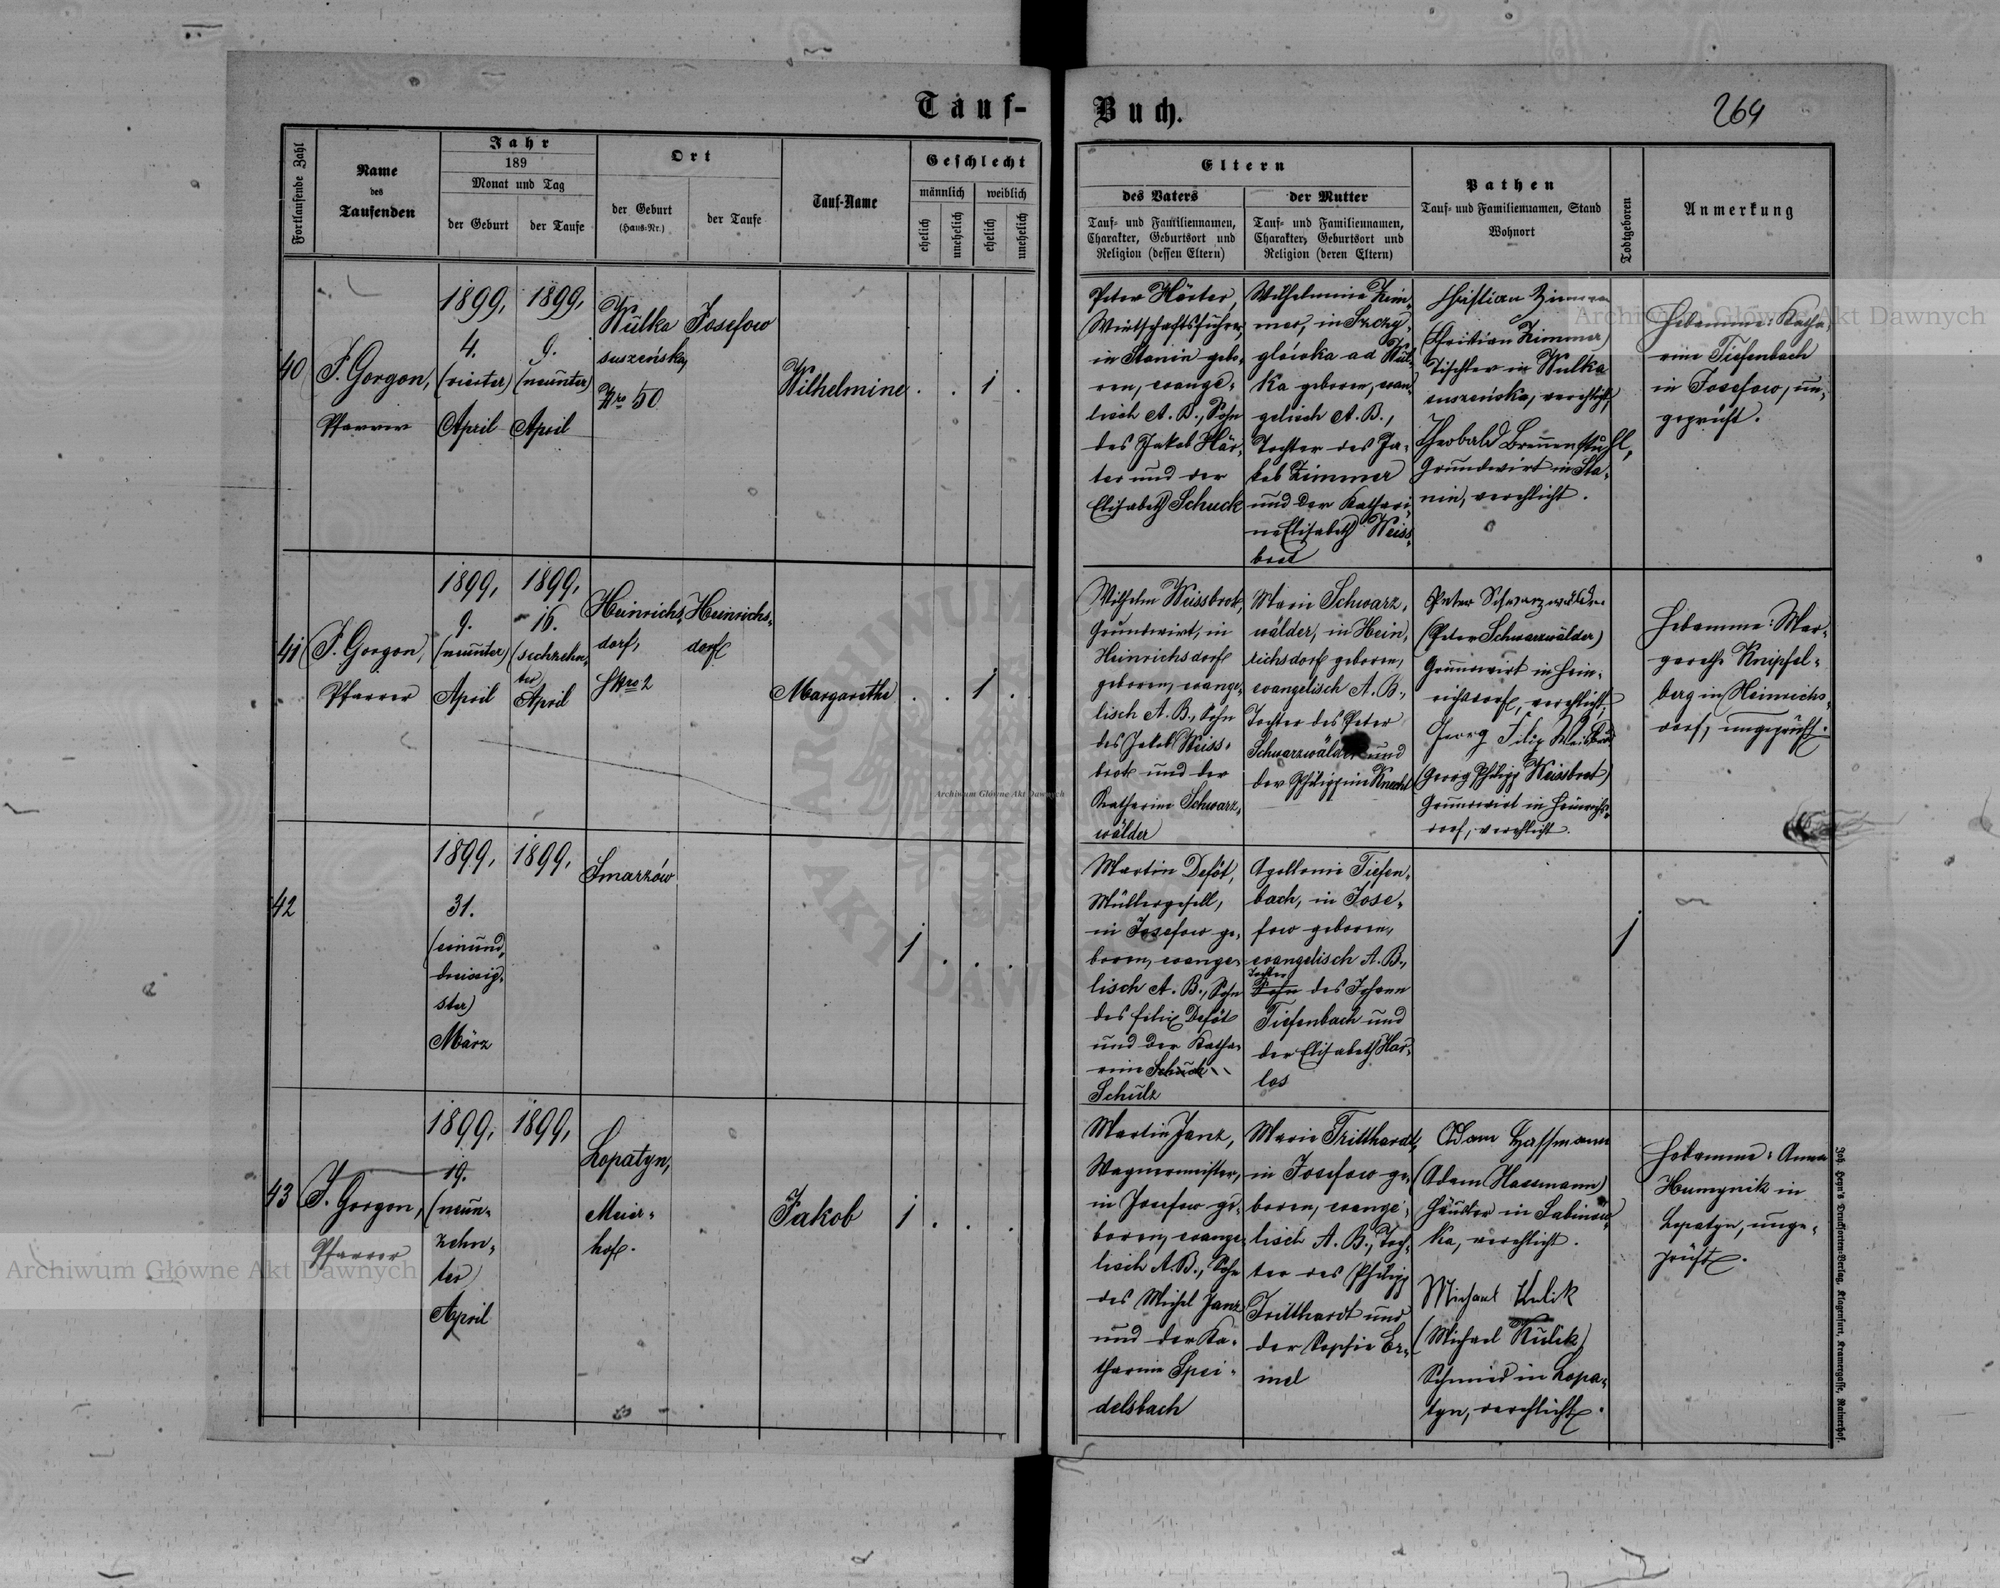 Tauf-
Buch.
264
Fortlaufende Zahl
Name
des
Taufenden
Jahr
189
Monat und Tag
der Geburt
der Taufe
Ort
der Geburt
(Haus-Nr.)
der Taufe
Tauf-Name
Geschlecht
männlich
weiblich
ehelich
unehelich
ehelich
unehelich
Eltern
des Vaters
Tauf- und Familiennamen,
Charakter, Geburtsort und
Religion (dessen Eltern)
der Mutter
Tauf- und Familiennamen,
Charakter, Geburtsort und
Religion (deren Eltern)
Pathen
Tauf- und Familiennamen, Stand
Wohnort
Todtgeboren
Anmerkung
40
J. Gorgon,
Pfarrer
1899,
4.
(vierter)
April
1899,
9.
(neunter)
April
Wulka
suszeńska,
Nro 50
Josefow
Wilhelmine
. . 1 .
Peter Härter,
Wirtschaftsführer,
in Stanin gebo-
ren, evange-
lisch A. B., Sohn
des Jakob Här-
ter und der
Elisabeth Schuck
Wilhelmine Zim-
mer, in Szczy-
ka geboren, evan-
gelisch A. B.,
Tochter des Ja-
kob Zimmer
und der Kathari-
ne Elisabeth Weiss-
brod
Christian Zimmer
(Christian Zimmer)
Tischler in Wulka
suszeńska, verehlicht,
Theobald Brennenstuhl,
Grundwirt in Sta-
nin, verehlicht.
Hebamme: Katha-
rine Tiefenbach
in Josefow, un-
geprüft.
41
J. Gorgon,
Pfarrer
1899,
9.
(neunter)
April
1899,
16.
(sechzehn-
ter)
April
Heinrichs-
dorf,
Nro 2
Heinrichs-
dorf
Margarethe
. . 1 .
Wilhelm Weissbrot,
Grundwirt, in
Heinrichsdorf
geboren, evange-
lisch A. B., Sohn
des Jakob Weiss-
brot und der
Katharine Schwarz-
wälder
Marie Schwarz-
wälder, in Hein-
richsdorf geboren,
evangelisch A. B.,
Tochter des Peter
Schwarzwälder und
der Philippine Knecht
Peter Schwarzwälder
(Peter Schwarzwälder)
Grundwirt in Hein-
richsdorf, verehlicht,
Georg Filip Weisbrod
(Georg Philipp Weissbrot)
Grundwirt in Heinrichs-
dorf, verehlicht.
Hebamme: Mar-
garethe Knipfel-
berg in Heinrichs-
dorf, ungeprüft.
42
1899,
31.
(einund-
dreissig-
ster)
März
1899,
Smarzów
1 . . .
Martin Defót,
Müllergesell,
in Josefow ge-
boren, evange-
lisch A. B., Sohn
des Felix Defót
und der Katha-
rine Schuck
Schulz
Apollonie Tiefen-
bach, in Jose-
fow geboren,
evangelisch A. B.,
Tochter
Sohn des Johann
Tiefenbach und
der Elisabeth Har-
los
1
43
J. Gorgon,
Pfarrer
1899,
19.
(neun-
zehn-
ter)
April
1899,
Lopatyn,
Meier-
hof.
Jakob
1 . . .
Martin Janz,
Wagnermeister,
in Josefow ge-
boren, evange-
lisch A. B., Sohn
des Michel Janz
und der Ka-
tharine Spei-
delsbach
Marie Tritthardt,
in Josefow ge-
boren, evange-
lisch A. B., Toch-
ter des Philipp
Tritthardt und
der Sophie
Adam Hassmann
(Adam Hassmann)
Häusler in Sabinow-
ka, verehlicht.
Michael Kulik
(Michael Kulik)
Schmied in Lopa-
tyn, verehlicht.
Hebamme: Anna
Humynik in
Lopatyn, unge-
prüft.
Joh. Heyn's Drucksorten-Verlag, Klagenfurt, Kramergasse, Rainerhof.
Archiwum Główne Akt Dawnych
Archiwum Główne Akt Dawnych
Archiwum Główne Akt Dawnych